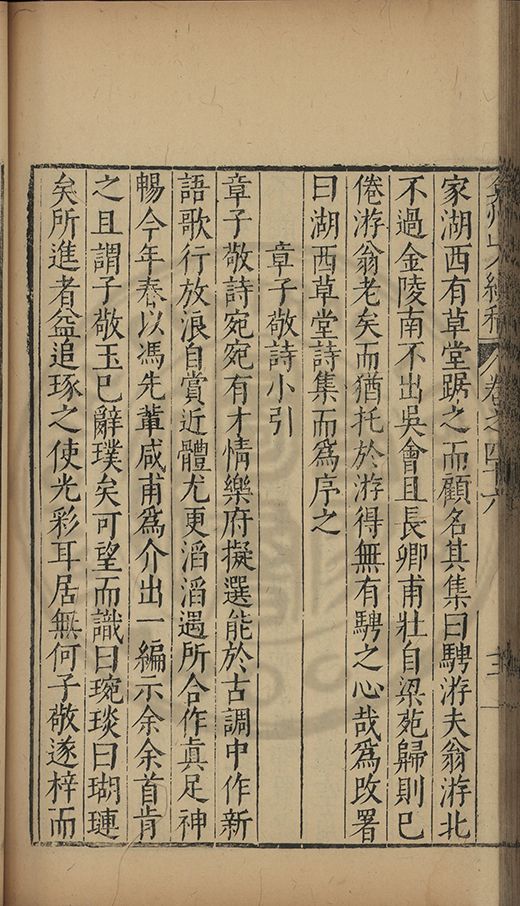 弇州山人續稿 卷之四十六
家湖西有草堂踞之而顧名其集曰騁游夫翁游北
不過金陵南不出吳會且長卿甫壯自梁苑歸則已
倦游翁老矣而猶托於游得無有騁之心哉爲改署
曰湖西草堂詩集而爲序之
章子敬詩小引
章子敬詩宛宛有才情樂府擬選能於古調中作新
語歌行放浪自賞近體尤更滔滔遇所合作眞足神
暢今年春以馮先軰咸甫爲介出一編示余余首肯
之且謂子敬玉已辭璞矣可望而識曰琬琰曰瑚璉
矣所進者益追琢之使光彩耳居無何子敬遂梓而